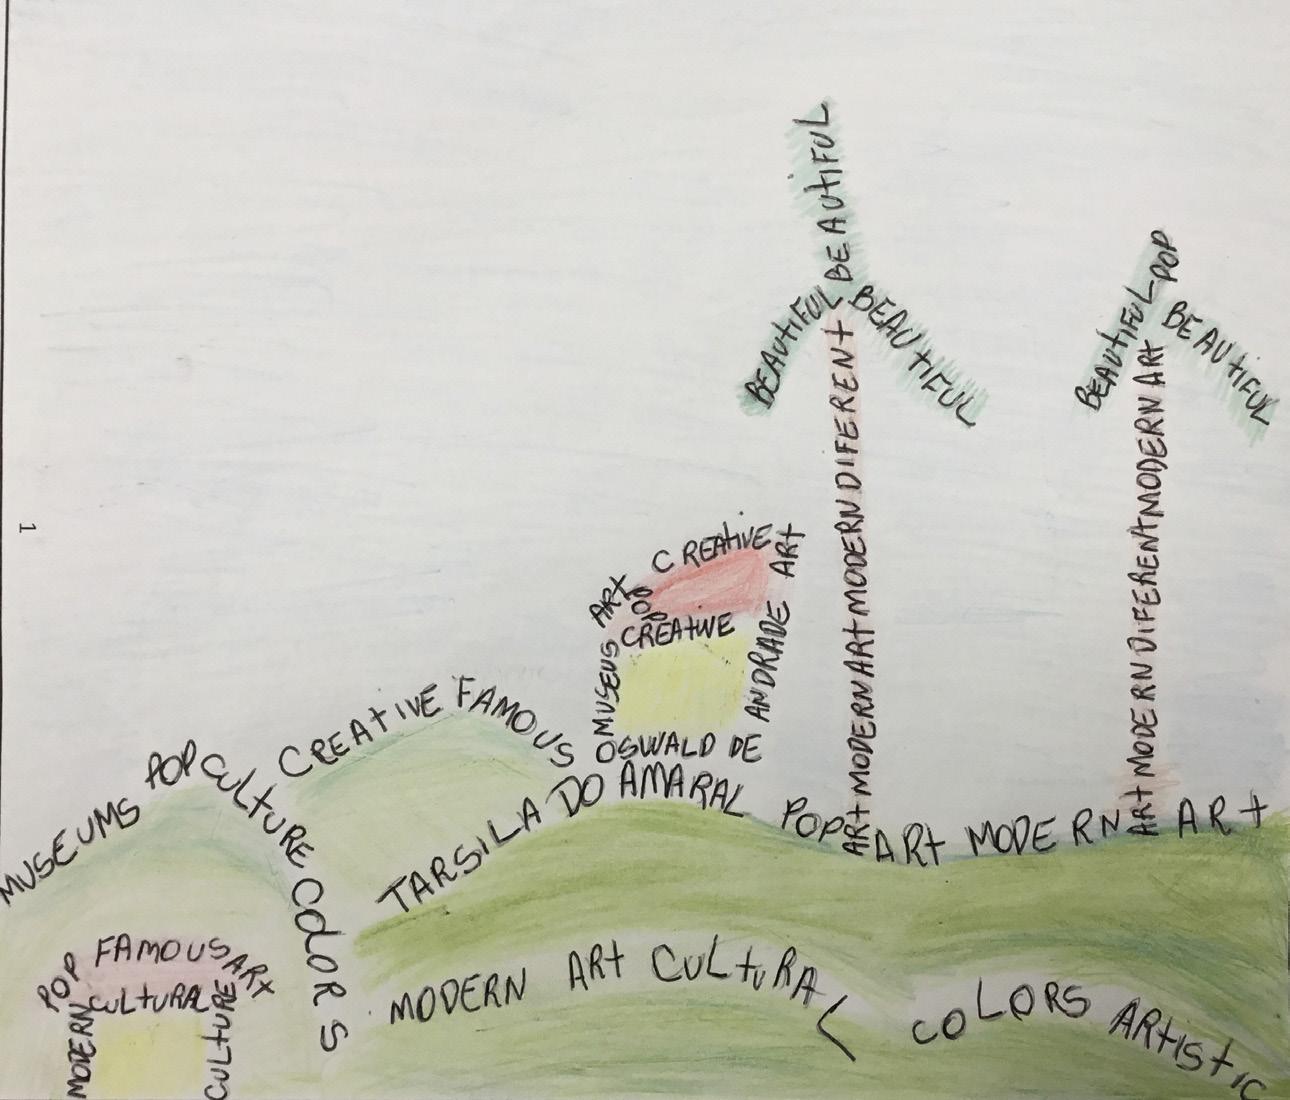 BEAUTIFUL
BEAUTIFUL
BEAUTIFUL
ART MODERN ART MODERN DIFERENT
BEAUTIFUL
POP
BEAUTIFUL
ART MODERN DIFERENT MODERN ART
CREATIVE
ART
POP
CREATIVE
MUSEUS
OSWALD DE
ANDRADE
ART
MUSEUMS POP CULTURE COLORS
CREATIVE FAMOUS
TARSILA DO AMARAL POP ART MODERN ART
POP FAMOUS ART
CULTURAL
MODERN
CULTURE
MODERN ART CULTURAL COLORS ARTISTIC
1